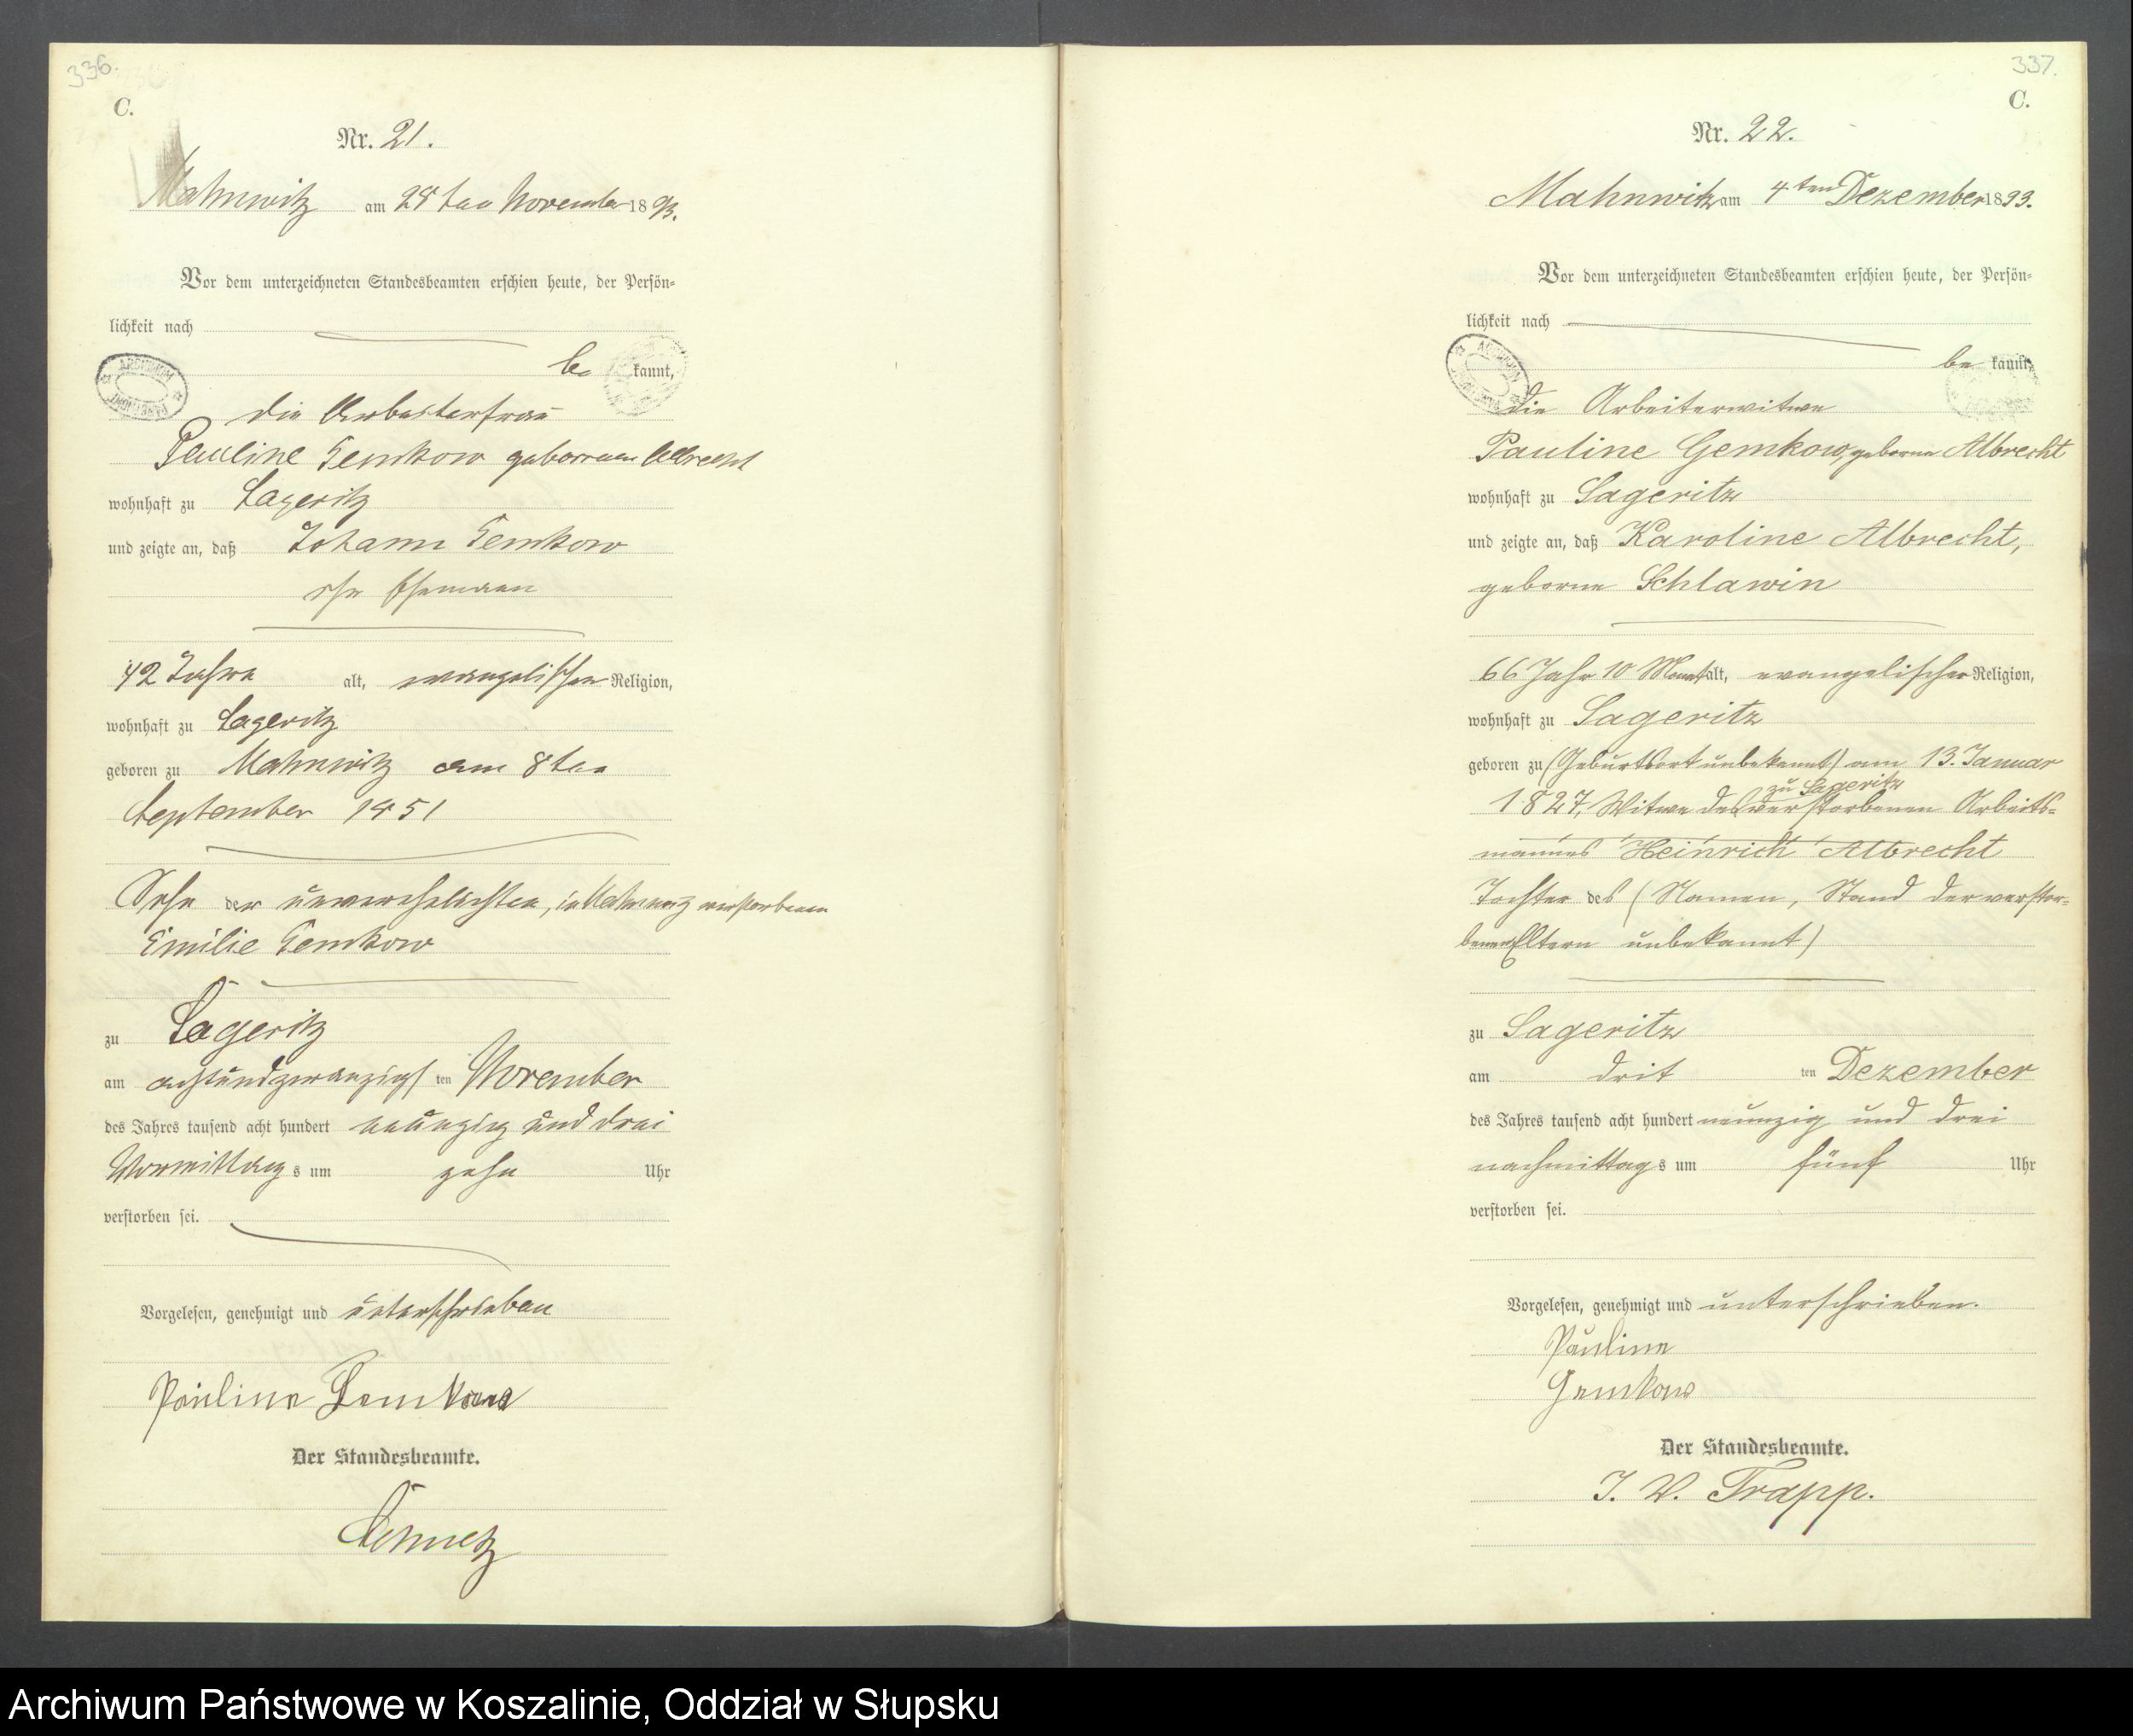 336.
C.
Nr. 21.
Mahnwitz am 28 ten November 1893.
Vor dem unterzeichneten Standesbeamten erschien heute, der Persön-
lichkeit nach
be kannt,
die Arbeiterfrau
Pauline Gemkow geborenen Albrecht
wohnhaft zu Sageritz
und zeigte an, daß Johann Gemkow
ihr Ehemann
42 Jahre alt, evangelischer Religion,
wohnhaft zu Sageritz
geboren zu Mahnwitz am 8ten
September 1851
Sohn der unverehelichten, in Mahnwitz verstorbenen
Emilie Gemkow
zu Sageritz
am achtundzwanzigs ten November
des Jahres tausend acht hundert neunzig und drei
Vormittag s um zehn Uhr
verstorben sei.
Vorgelesen, genehmigt und unterschrieben
Pauline Gemkow
Der Standesbeamte.
337.
C.
Nr. 22.
Mahnwitz am 4ten Dezember 1893.
Vor dem unterzeichneten Standesbeamten erschien heute, der Persön-
lichkeit nach
be kannt,
die Arbeiterwitwe
Pauline Gemkow, geborne Albrecht
wohnhaft zu Sageritz
und zeigte an, daß Karoline Albrecht,
geborne Schlawin
66 Jahr 10 Monat alt, evangelischer Religion,
wohnhaft zu Sageritz
geboren zu (Geburtsort unbekannt) am 13. Januar
zu Sageritz
1827, Witwe des verstorbenen Arbeits-
mannes Heinrich Albrecht
Tochter des (Namen, Stand der verstor-
benen Eltern unbekannt)
zu Sageritz
am drit ten Dezember
des Jahres tausend acht hundert neunzig und drei
nachmittag s um fünf Uhr
verstorben sei.
Vorgelesen, genehmigt und unterschrieben.
Pauline
Gemkow
Der Standesbeamte.
J. V. Trapp.
Archiwum Państwowe w Koszalinie, Oddział w Słupsku